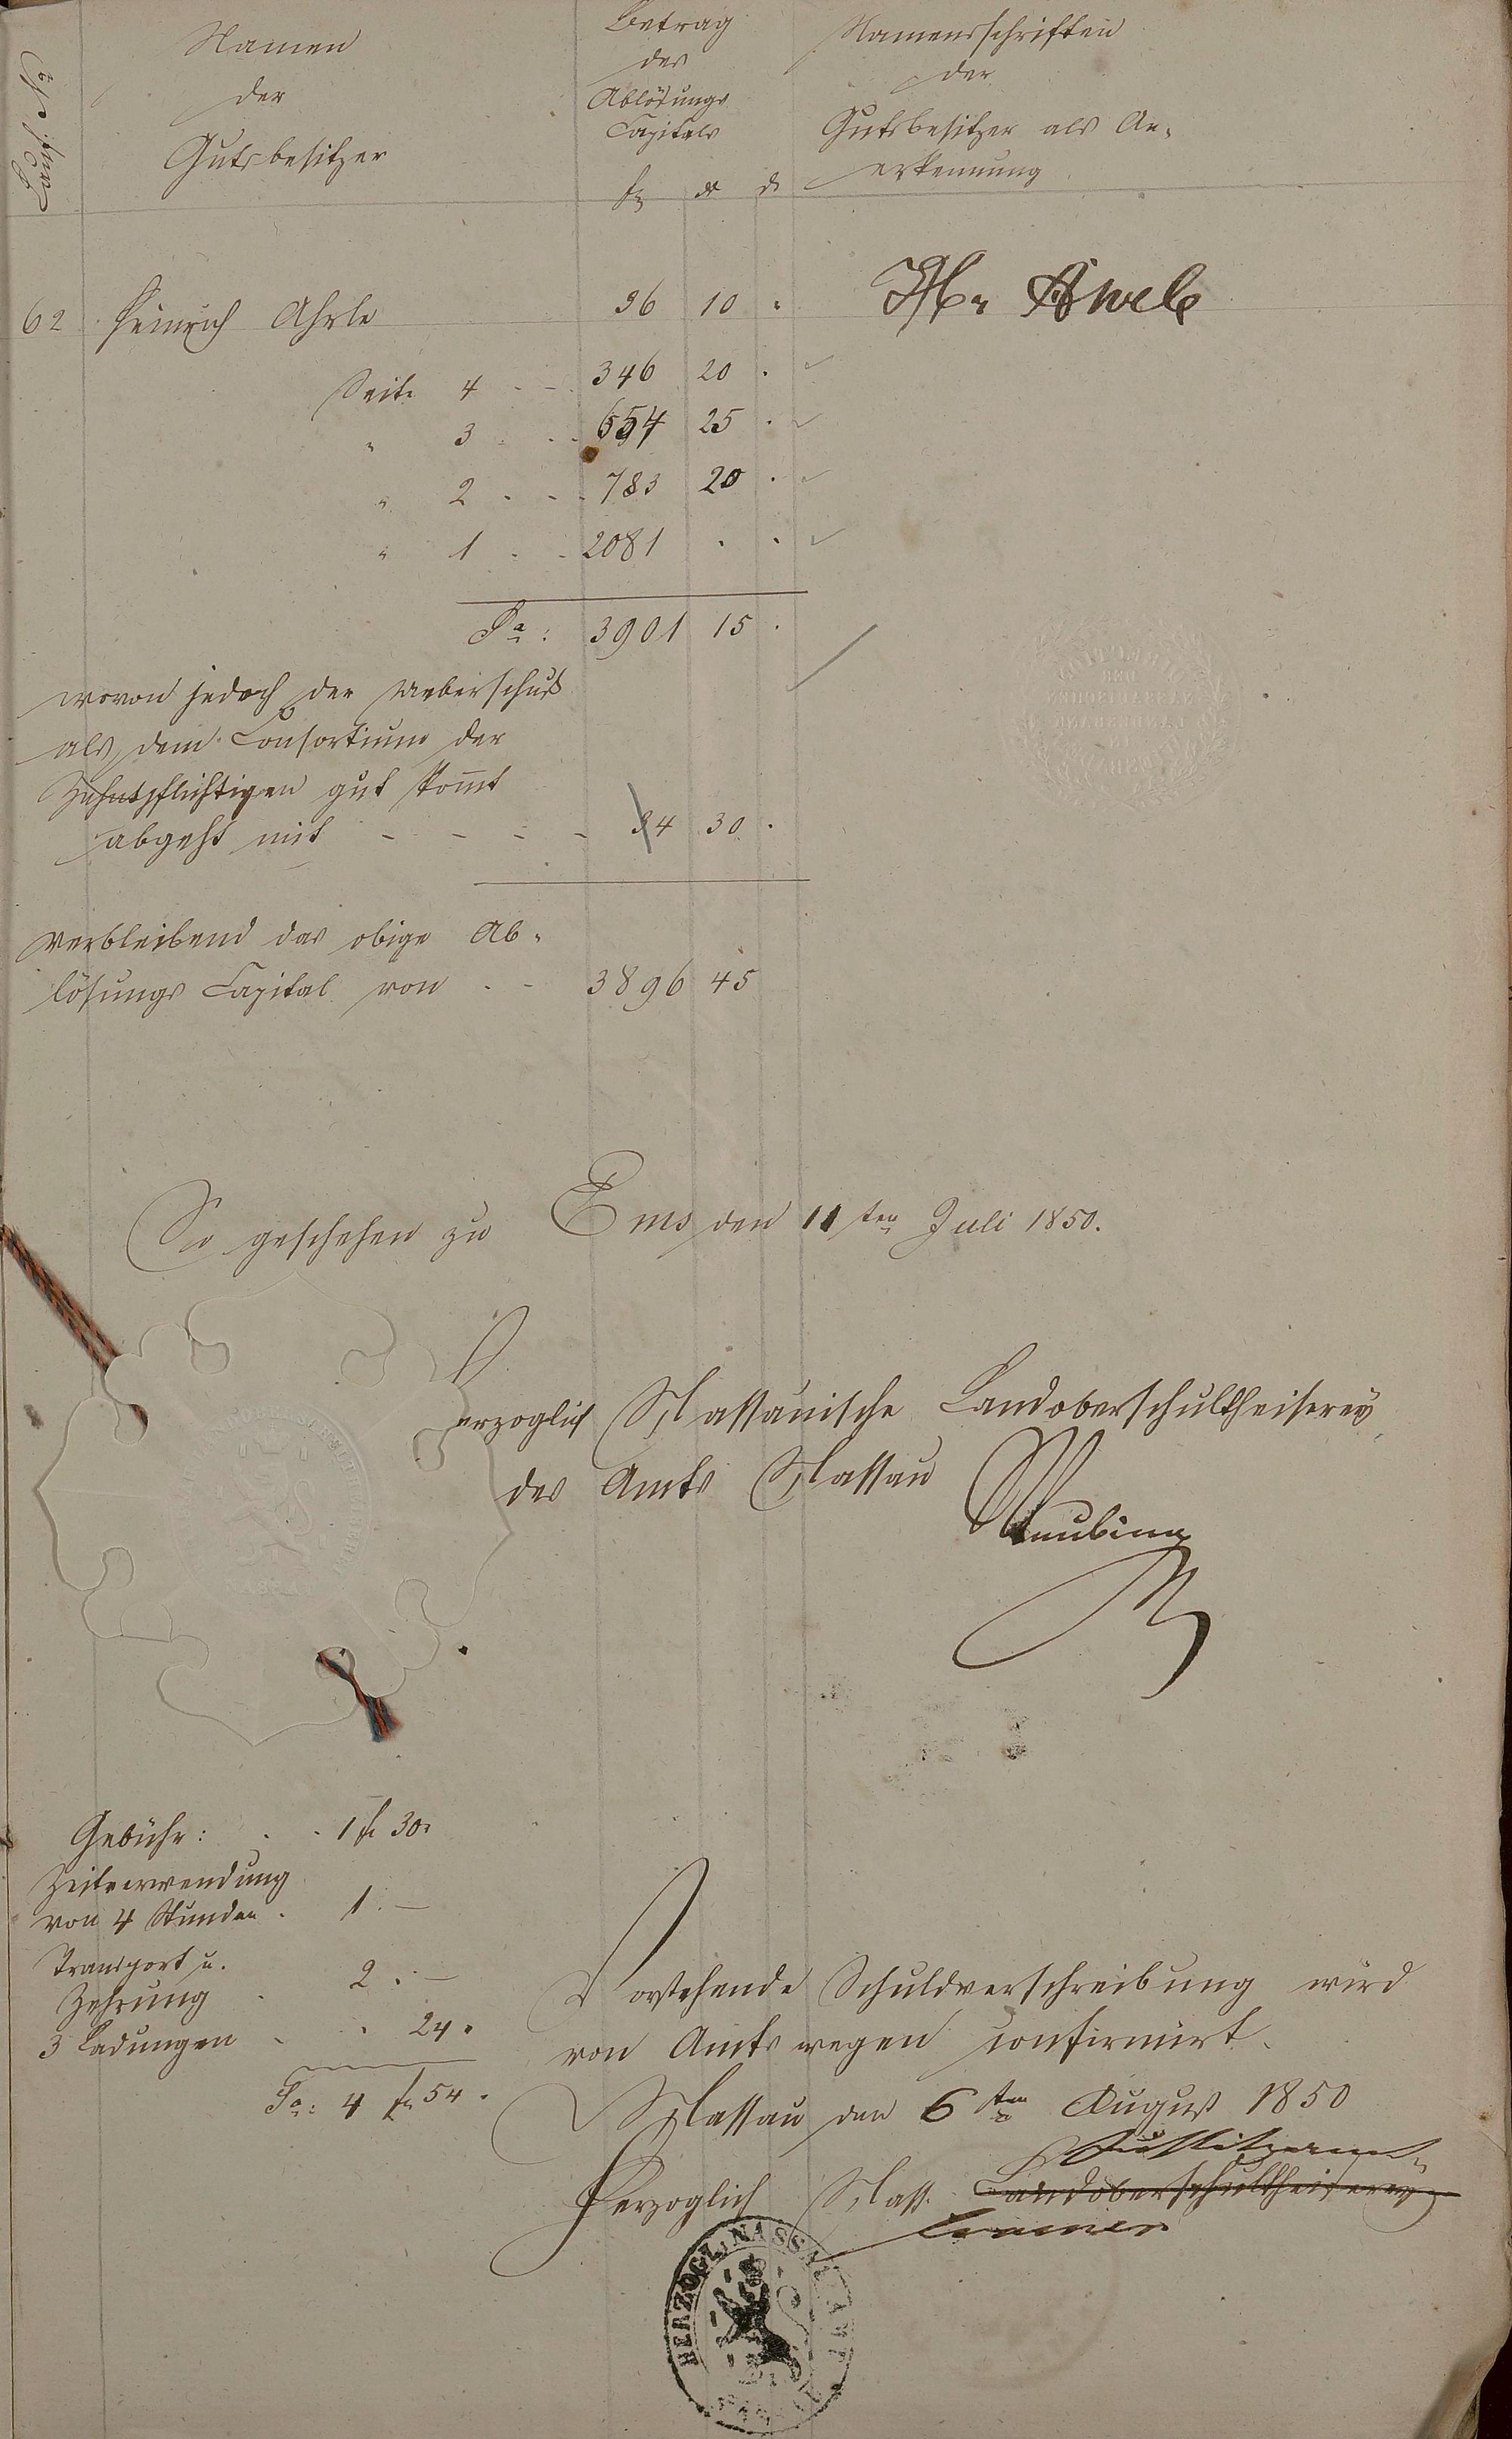 Namen
der
Gutsbesitzer
Betrag
des
Ablösungs
Capitals
Namensschriften
der
Gutsbesitzer als An-
erkennung
62 Heinrich Ahrle 36 10 "
Seite 4 - - 346 20 .
" 3 - - 654 25 .
" 2 - - 783 20 .
" 1 - - 2081 . .
Sa: 3901 15 .
wovon jedoch der Ueberschuß
als dem Consortium der
Zehntpflichtigen gut kommt
abgeht mit - - - - 34 30 .
verbleibend das obige Ab-
lösungs Capital von - - 3896 45
So geschehen zu Ems den 11ten Juli 1850.
Herzoglich Nassauische Landoberschultheiserey
des Amts Nassau
Gebühr: . . 1 fl 30"
Zeitverwendung
von 4 Stunden . 1. —
Transport u.
Zehrung . 2. —
3 Ladungen - " 24 "
Sa: 4 fl 54 "
Vorstehende Schuldverschreibung wird
von Amts wegen confirmirt.
Nassau den 6ten August 1850
Justizamt
Herzoglich Nass. Landoberschultheiserey
HERZOGL: NASSAU